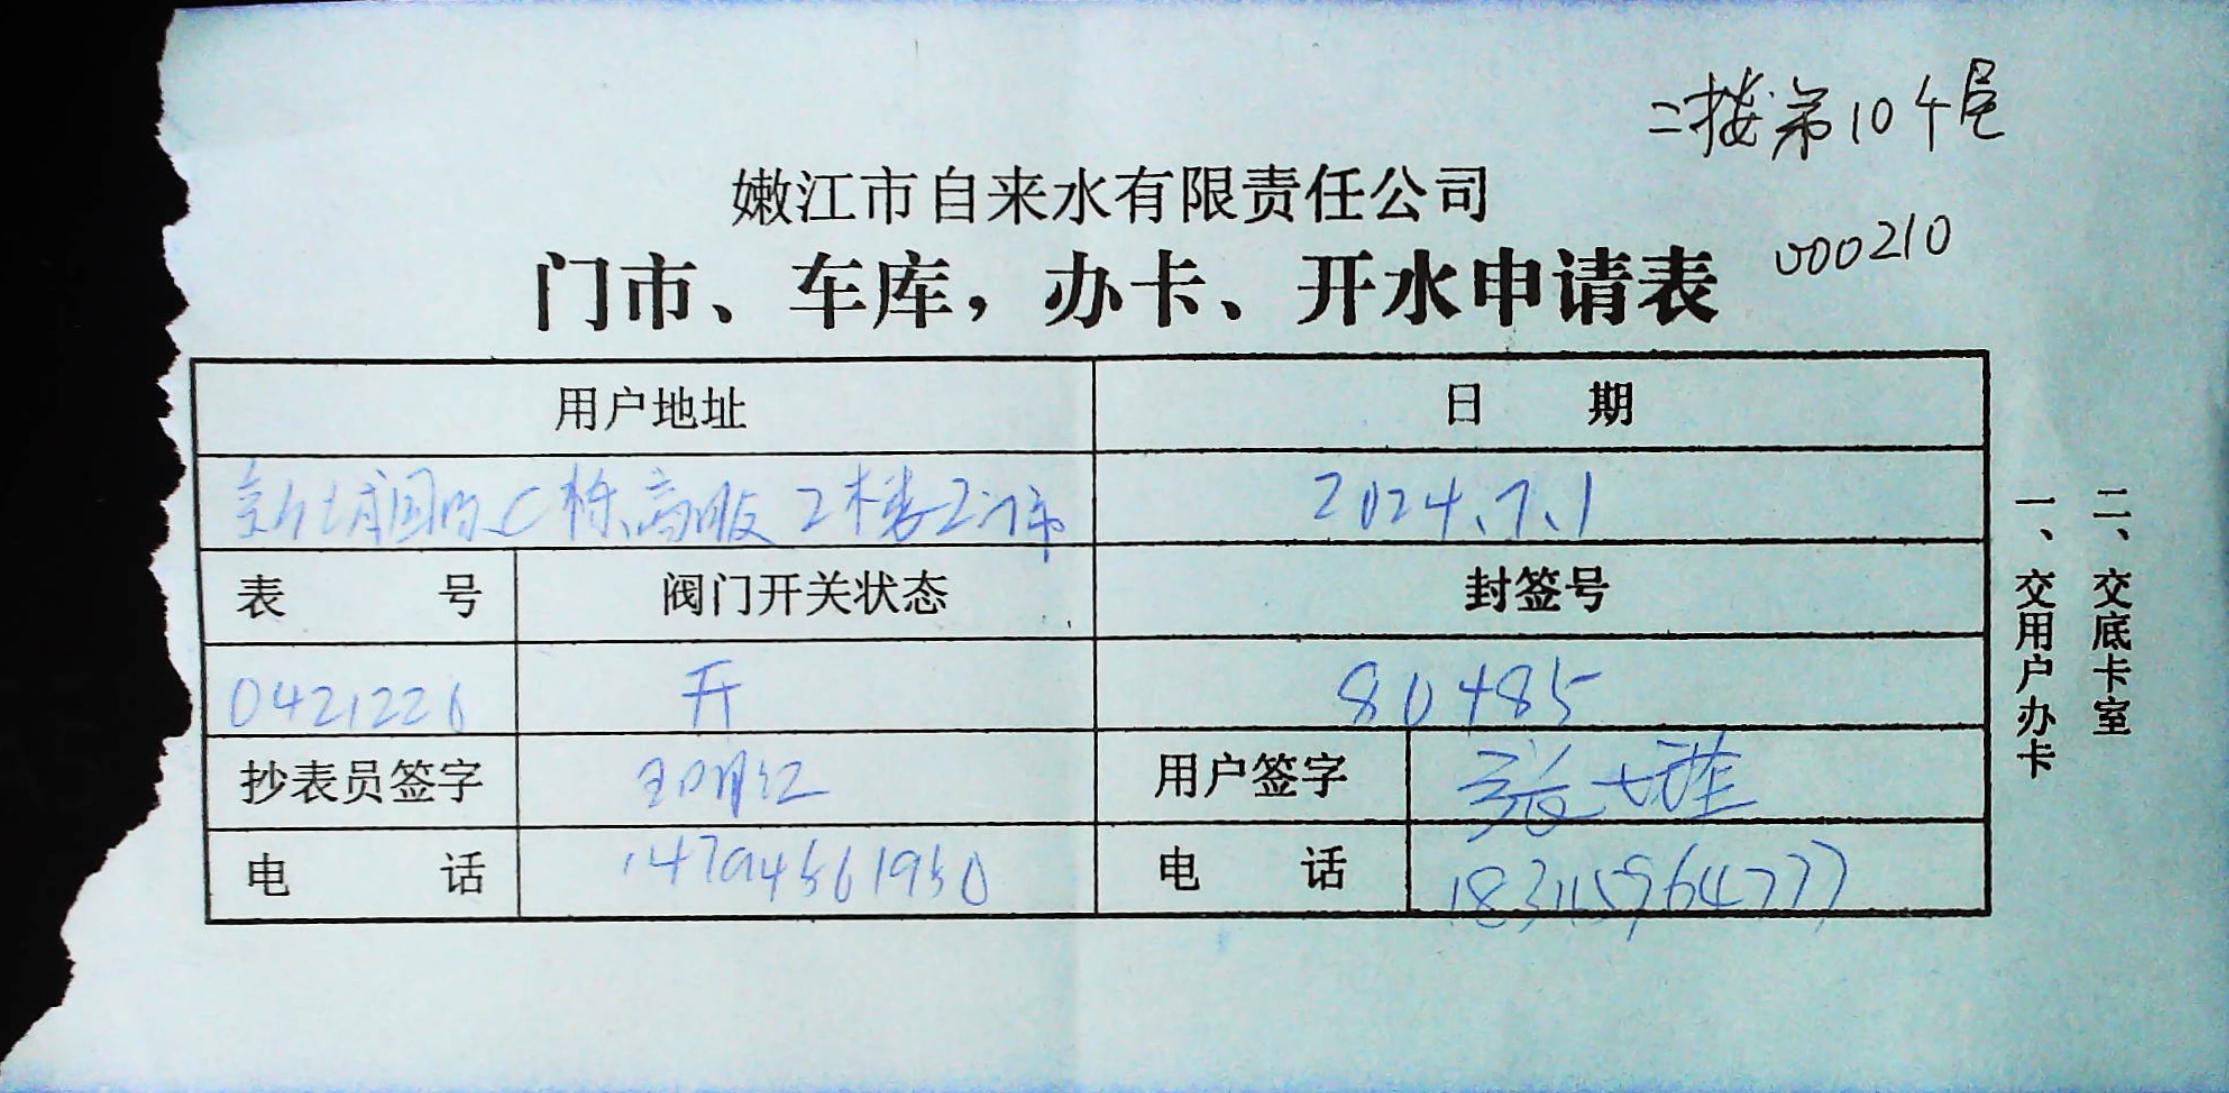 二楼第10个屋
嫩江市自来水有限责任公司
门市、车库，办卡、开水申请表
000210
用户地址 日 期
C栋高服2楼2门市 2024.7.1
表 号 阀门开关状态 封签号
0421226 开 80485
抄表员签字 用户签字 张
电 话 14794561950 电 话 18311596477
一、交用户办卡
二、交底卡室